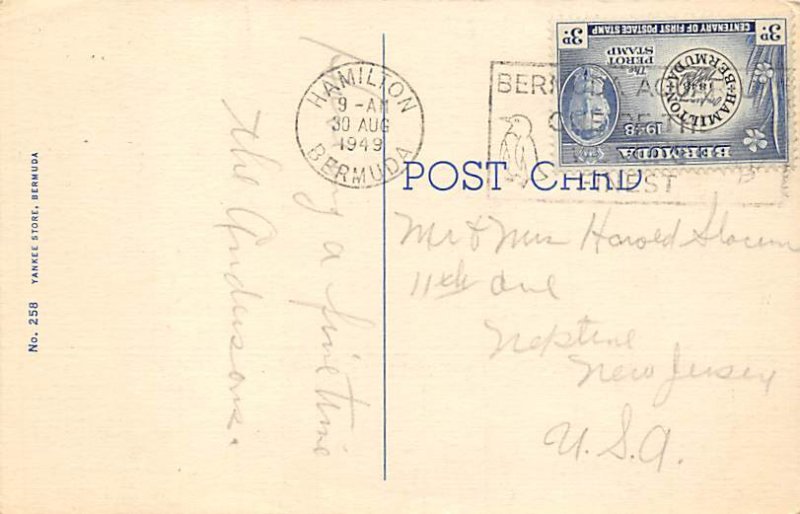 No. 258 YANKEE STORE, BERMUDA
Having a fine time
The Andersons.
HAMILTON
9 - AM
30 AUG
1949
BERMUDA
POST CARD
BERMUDA
FINEST
3D CENTENARY OF FIRST POSTAGE STAMP 3D
The
PEROT
STAMP
HAMILTON BERMUDA
1848
1948
BERMUDA
Mr & Mrs Harold Slocum
11th Ave
Neptune
New Jersey
U.S.A.